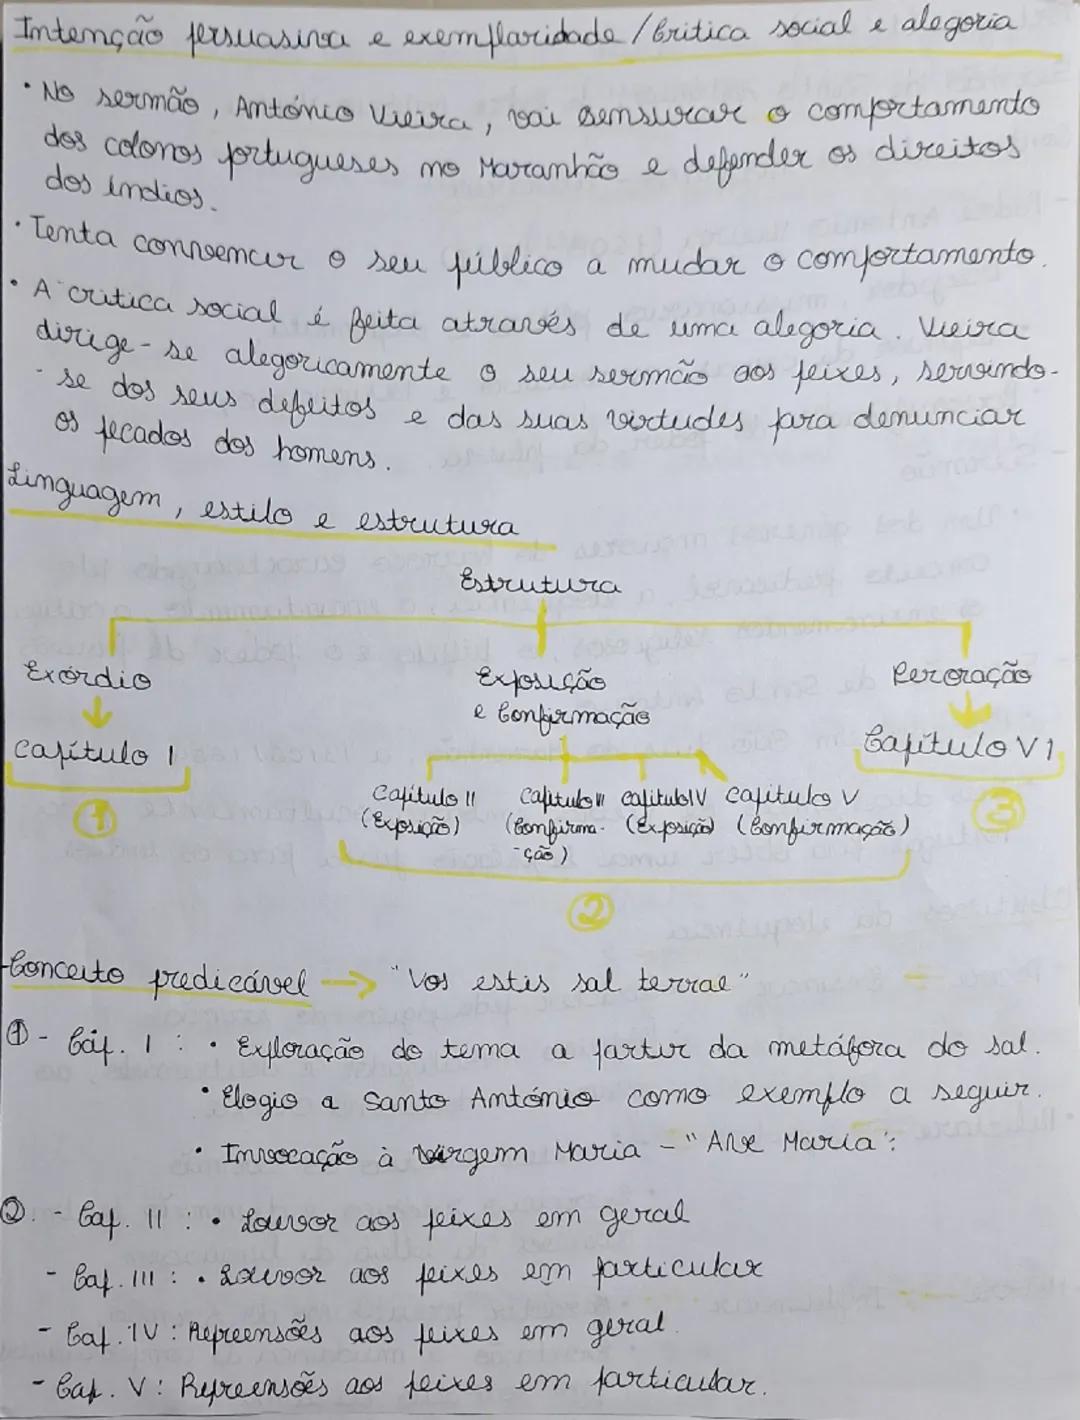 Intenção persuasiva e exemplaridade / Crítica social e alegoria
• No sermão, António Vieira, vai sensurar o comportamento
dos colonos portugueses no Maranhão e defender os direitos
dos índios.
• Tenta convencer o seu público a mudar o comportamento.
• A crítica social é feita através de uma alegoria. Vieira
dirige-se alegoricamente o seu sermão aos peixes, servindo-
-se dos seus defeitos e das suas virtudes para denunciar
os pecados dos homens.
Linguagem, estilo e estrutura
Estrutura
Exórdio Exposição Peroração
e Confirmação
Capítulo I Capítulo VI
Capítulo II Capítulo III Capítulo IV Capítulo V
(Exposição) (Confirma- (Exposição) (Confirmação)
-ção)
① ③
②
-Conceito predicável → "Vos estis sal terrae"
① - Cáp. I : • Exploração do tema a partir da metáfora do sal.
• Elogio a Santo António como exemplo a seguir.
• Invocação à virgem Maria - "Ave Maria":
②. - Cap. II : • Louvor aos peixes em geral
- Cap. III : • Louvor aos peixes em particular
- Cap. IV : Repreensões aos peixes em geral.
- Cap. V : Repreensões aos peixes em particular.